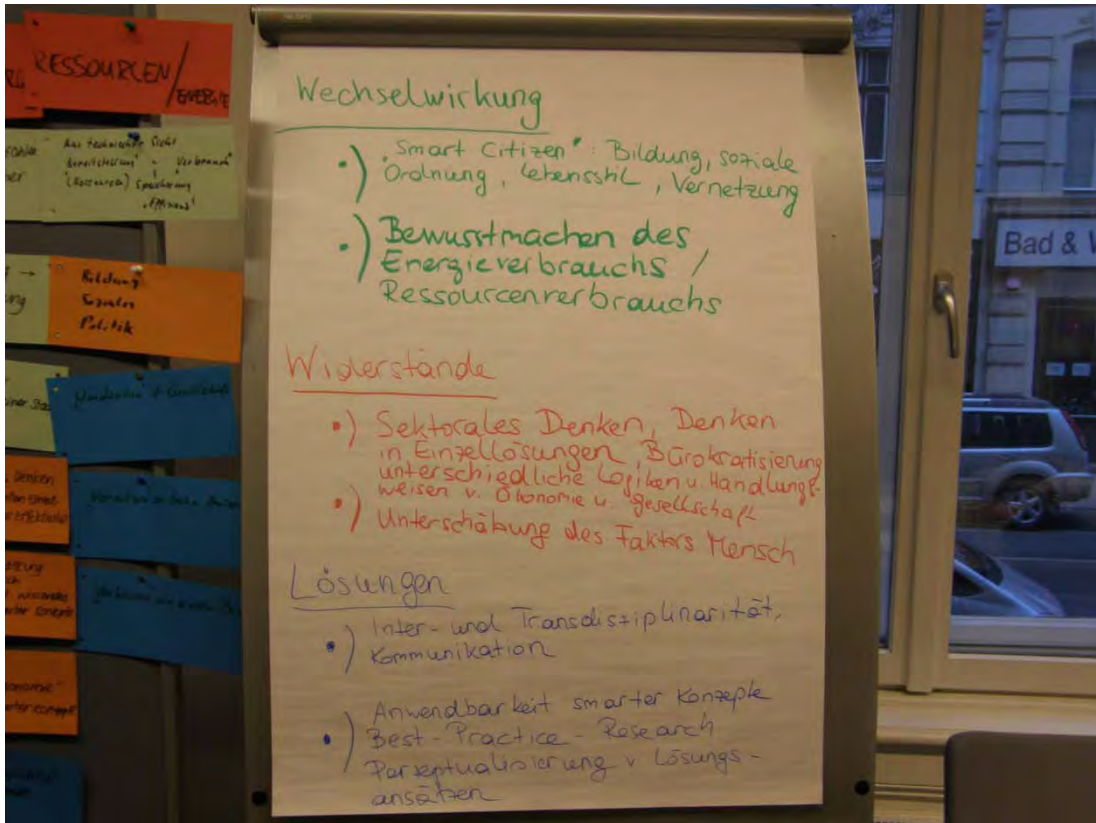 RESSOURCEN/
ENERGIE
Aus technischer Sicht
"Verbrauch"
(Ressourcen) Speicherung
"Effizienz"
Bildung
Soziales
Politik
Denken
Wechselwirkung
•) "Smart Citizen": Bildung, soziale
Ordnung, Lebensstil, Vernetzung
•) Bewusstmachen des
Energieverbrauchs /
Ressourcenverbrauchs
Widerstände
•) Sektorales Denken, Denken
in Einzellösungen, Bürokratisierung
unterschiedliche Logiken u. Handlungs-
weisen v. Ökonomie u. Gesellschaft
•) Unterschätzung des Faktors Mensch
Lösungen
•) Inter- und Transdisziplinarität,
Kommunikation
•) Anwendbarkeit smarter Konzepte
Best-Practice-Research
Perzeptualisierung v Lösungs-
ansätzen
Bad &